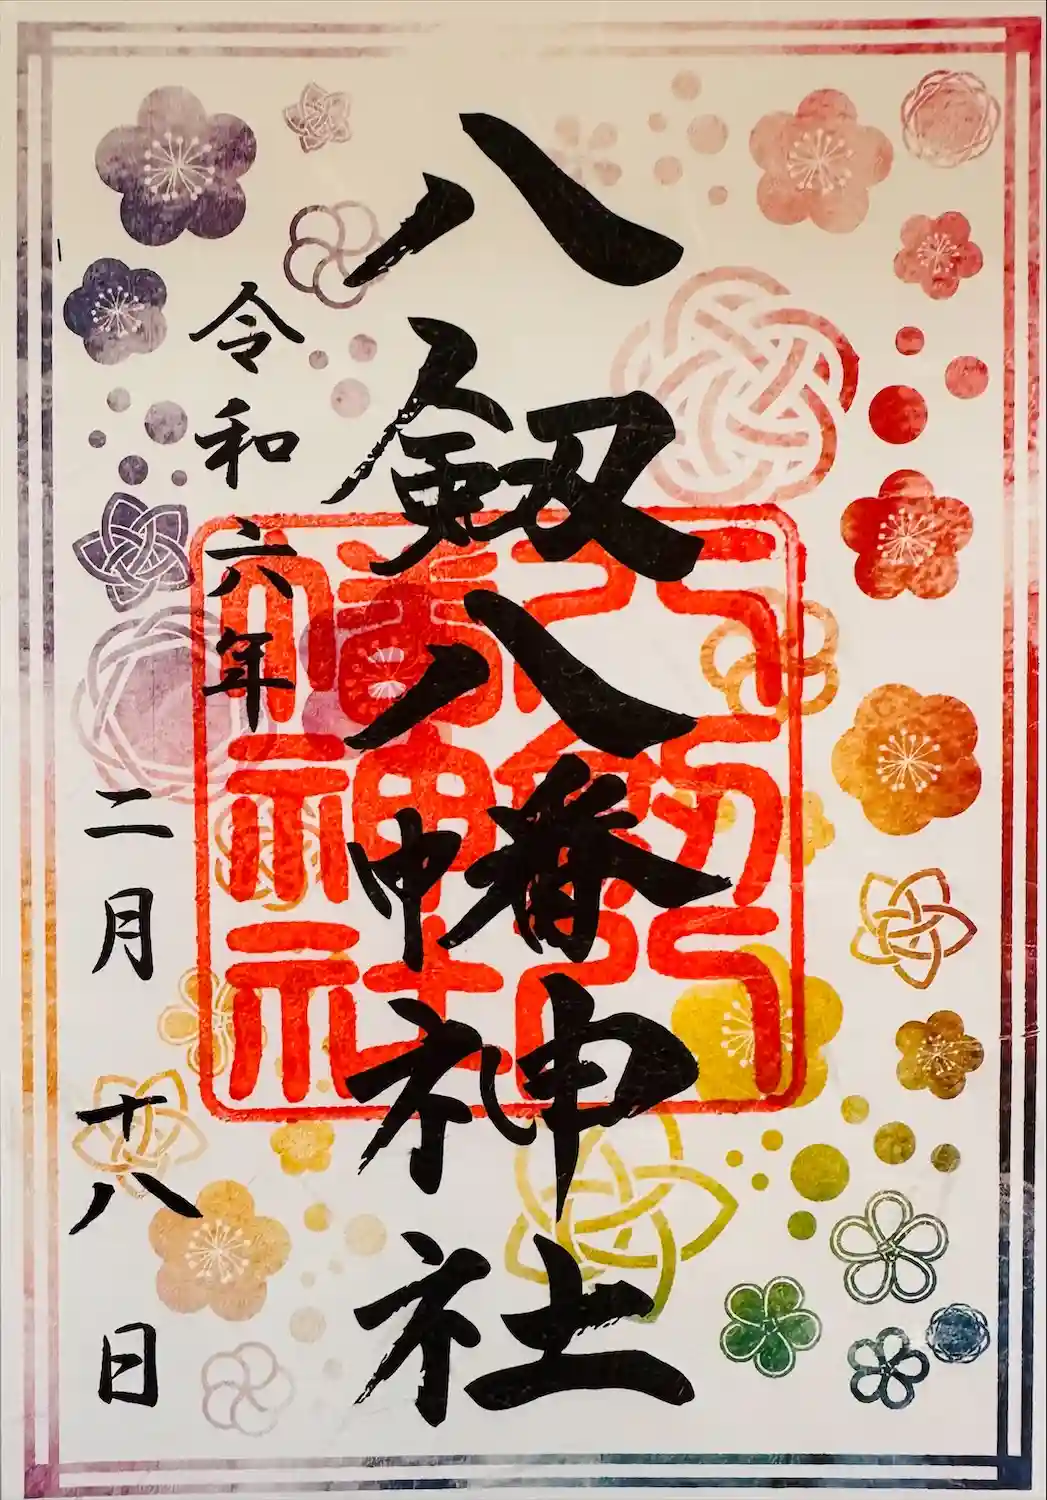 八剱八幡神社
令和六年
二月十八日
八剱八
幡神社